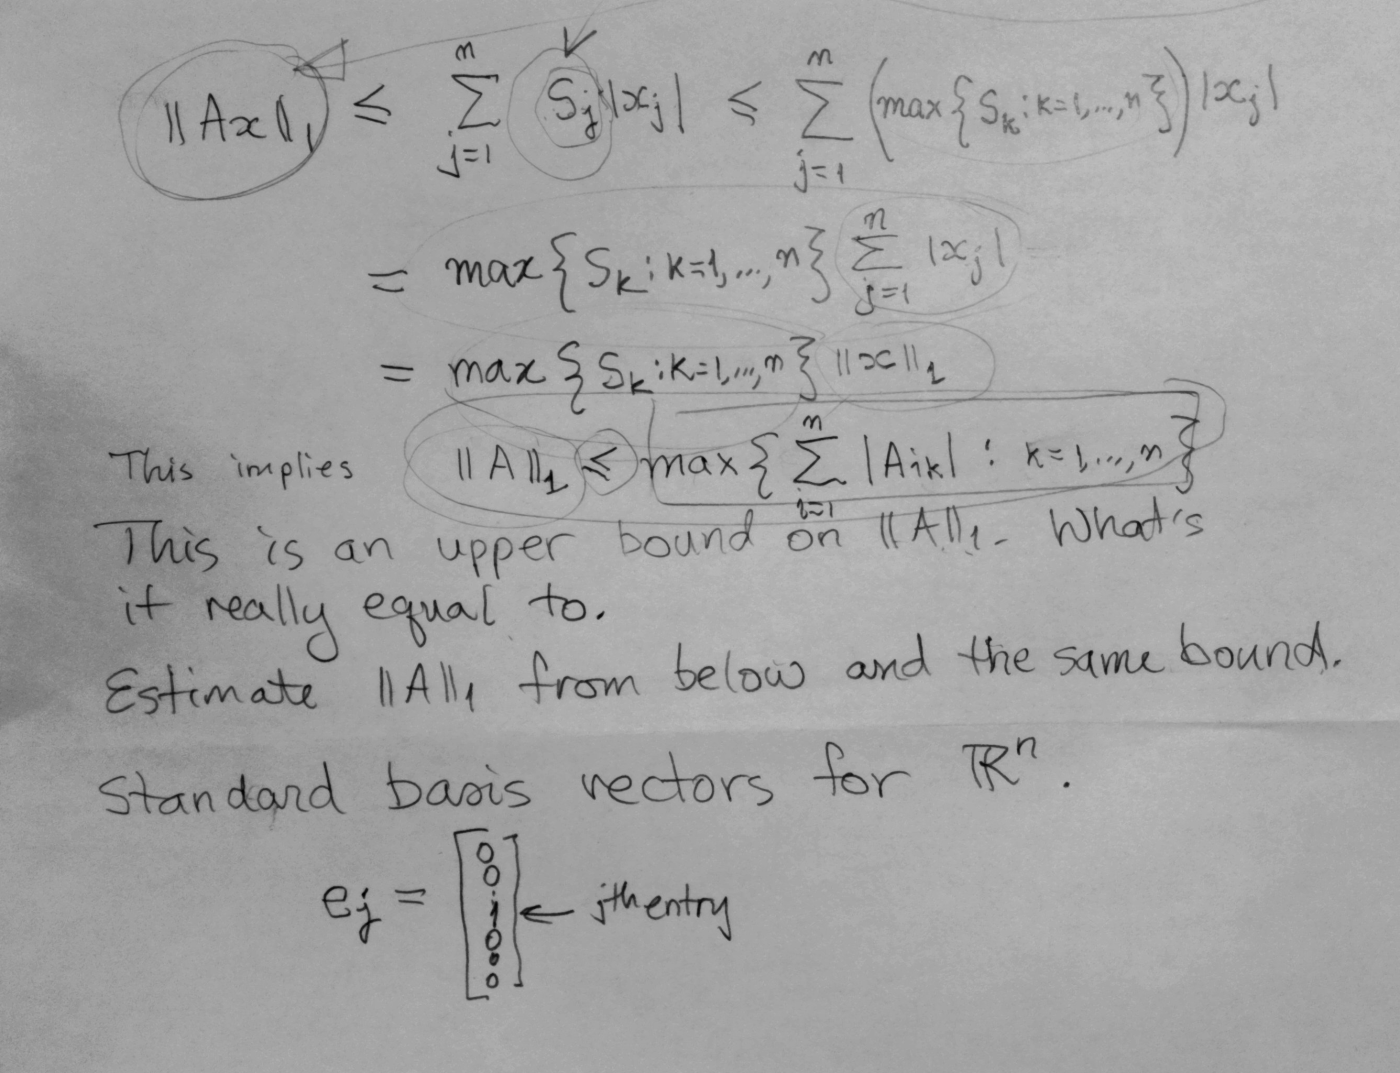 ||Ax||₁ ≤ ∑_{j=1}^{n} S_j |x_j| ≤ ∑_{j=1}^{n} (max{S_k : k=1,...,n}) |x_j|
= max{S_k : k=1,...,n} ∑_{j=1}^{n} |x_j|
= max{S_k : k=1,...,n} ||x||₁
This implies ||A||₁ ≤ max{∑_{i=1}^{n} |A_{ik}| : k=1,...,n}
This is an upper bound on ||A||₁. What's
it really equal to.
Estimate ||A||₁ from below and the same bound.
Standard basis vectors for ℝⁿ.
e_j = [0 0 . 1 0 0 0] ← jth entry